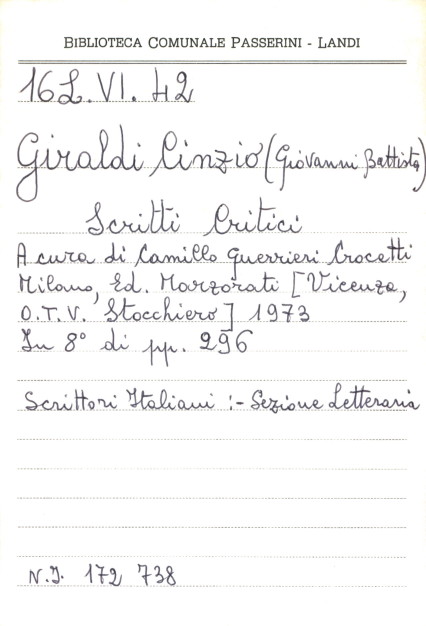 BIBLIOTECA COMUNALE PASSERINI - LANDI
16 L. VI. 42
Giraldi Cinzio (Giovanni Battista)
Scritti Critici
A cura di Camillo Guerrieri Crocetti
Milano, Ed. Marzorati [Vicenza,
O.T.V. Stocchiero] 1973
In 8° di pp. 296
Scrittori Italiani :- Sezione Letteraria
N.I. 172 738